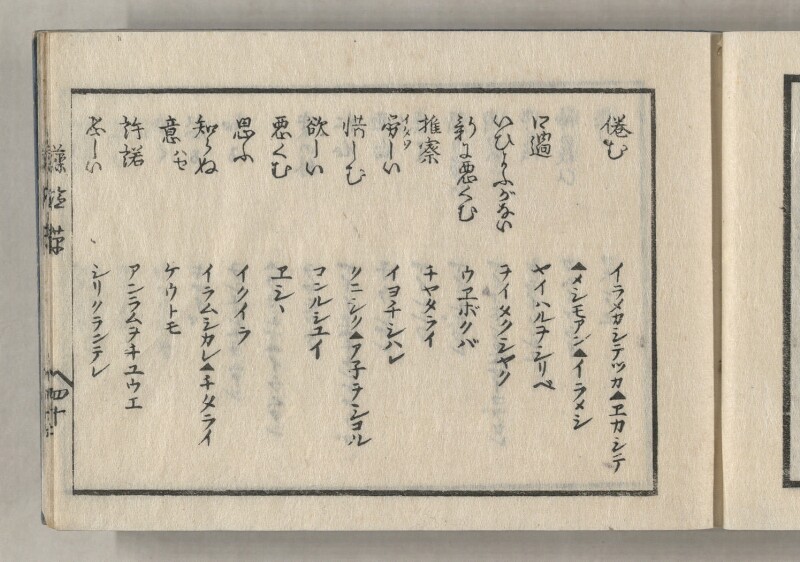 倦む　イラメカシテツカ▲ヱカシテ
▲メシモアン▲イラメシ
口過　ヤイハルヲシリペ
ヲイタクシヤク
悪くむ　ウヱボクバ
推察　チヤタライ
しい　イヨチシハレ
惜しむ　▲ア子ヲシコル
欲しい　コンルシユイ
悪くむ　ヱシヽ
思ふ　イクイラ
知らぬ　イラムシカレ▲チタライ
意ハセ　ケウトモ
許諾　アンラムヲチユウエ
しい　シリクランテレ
四十